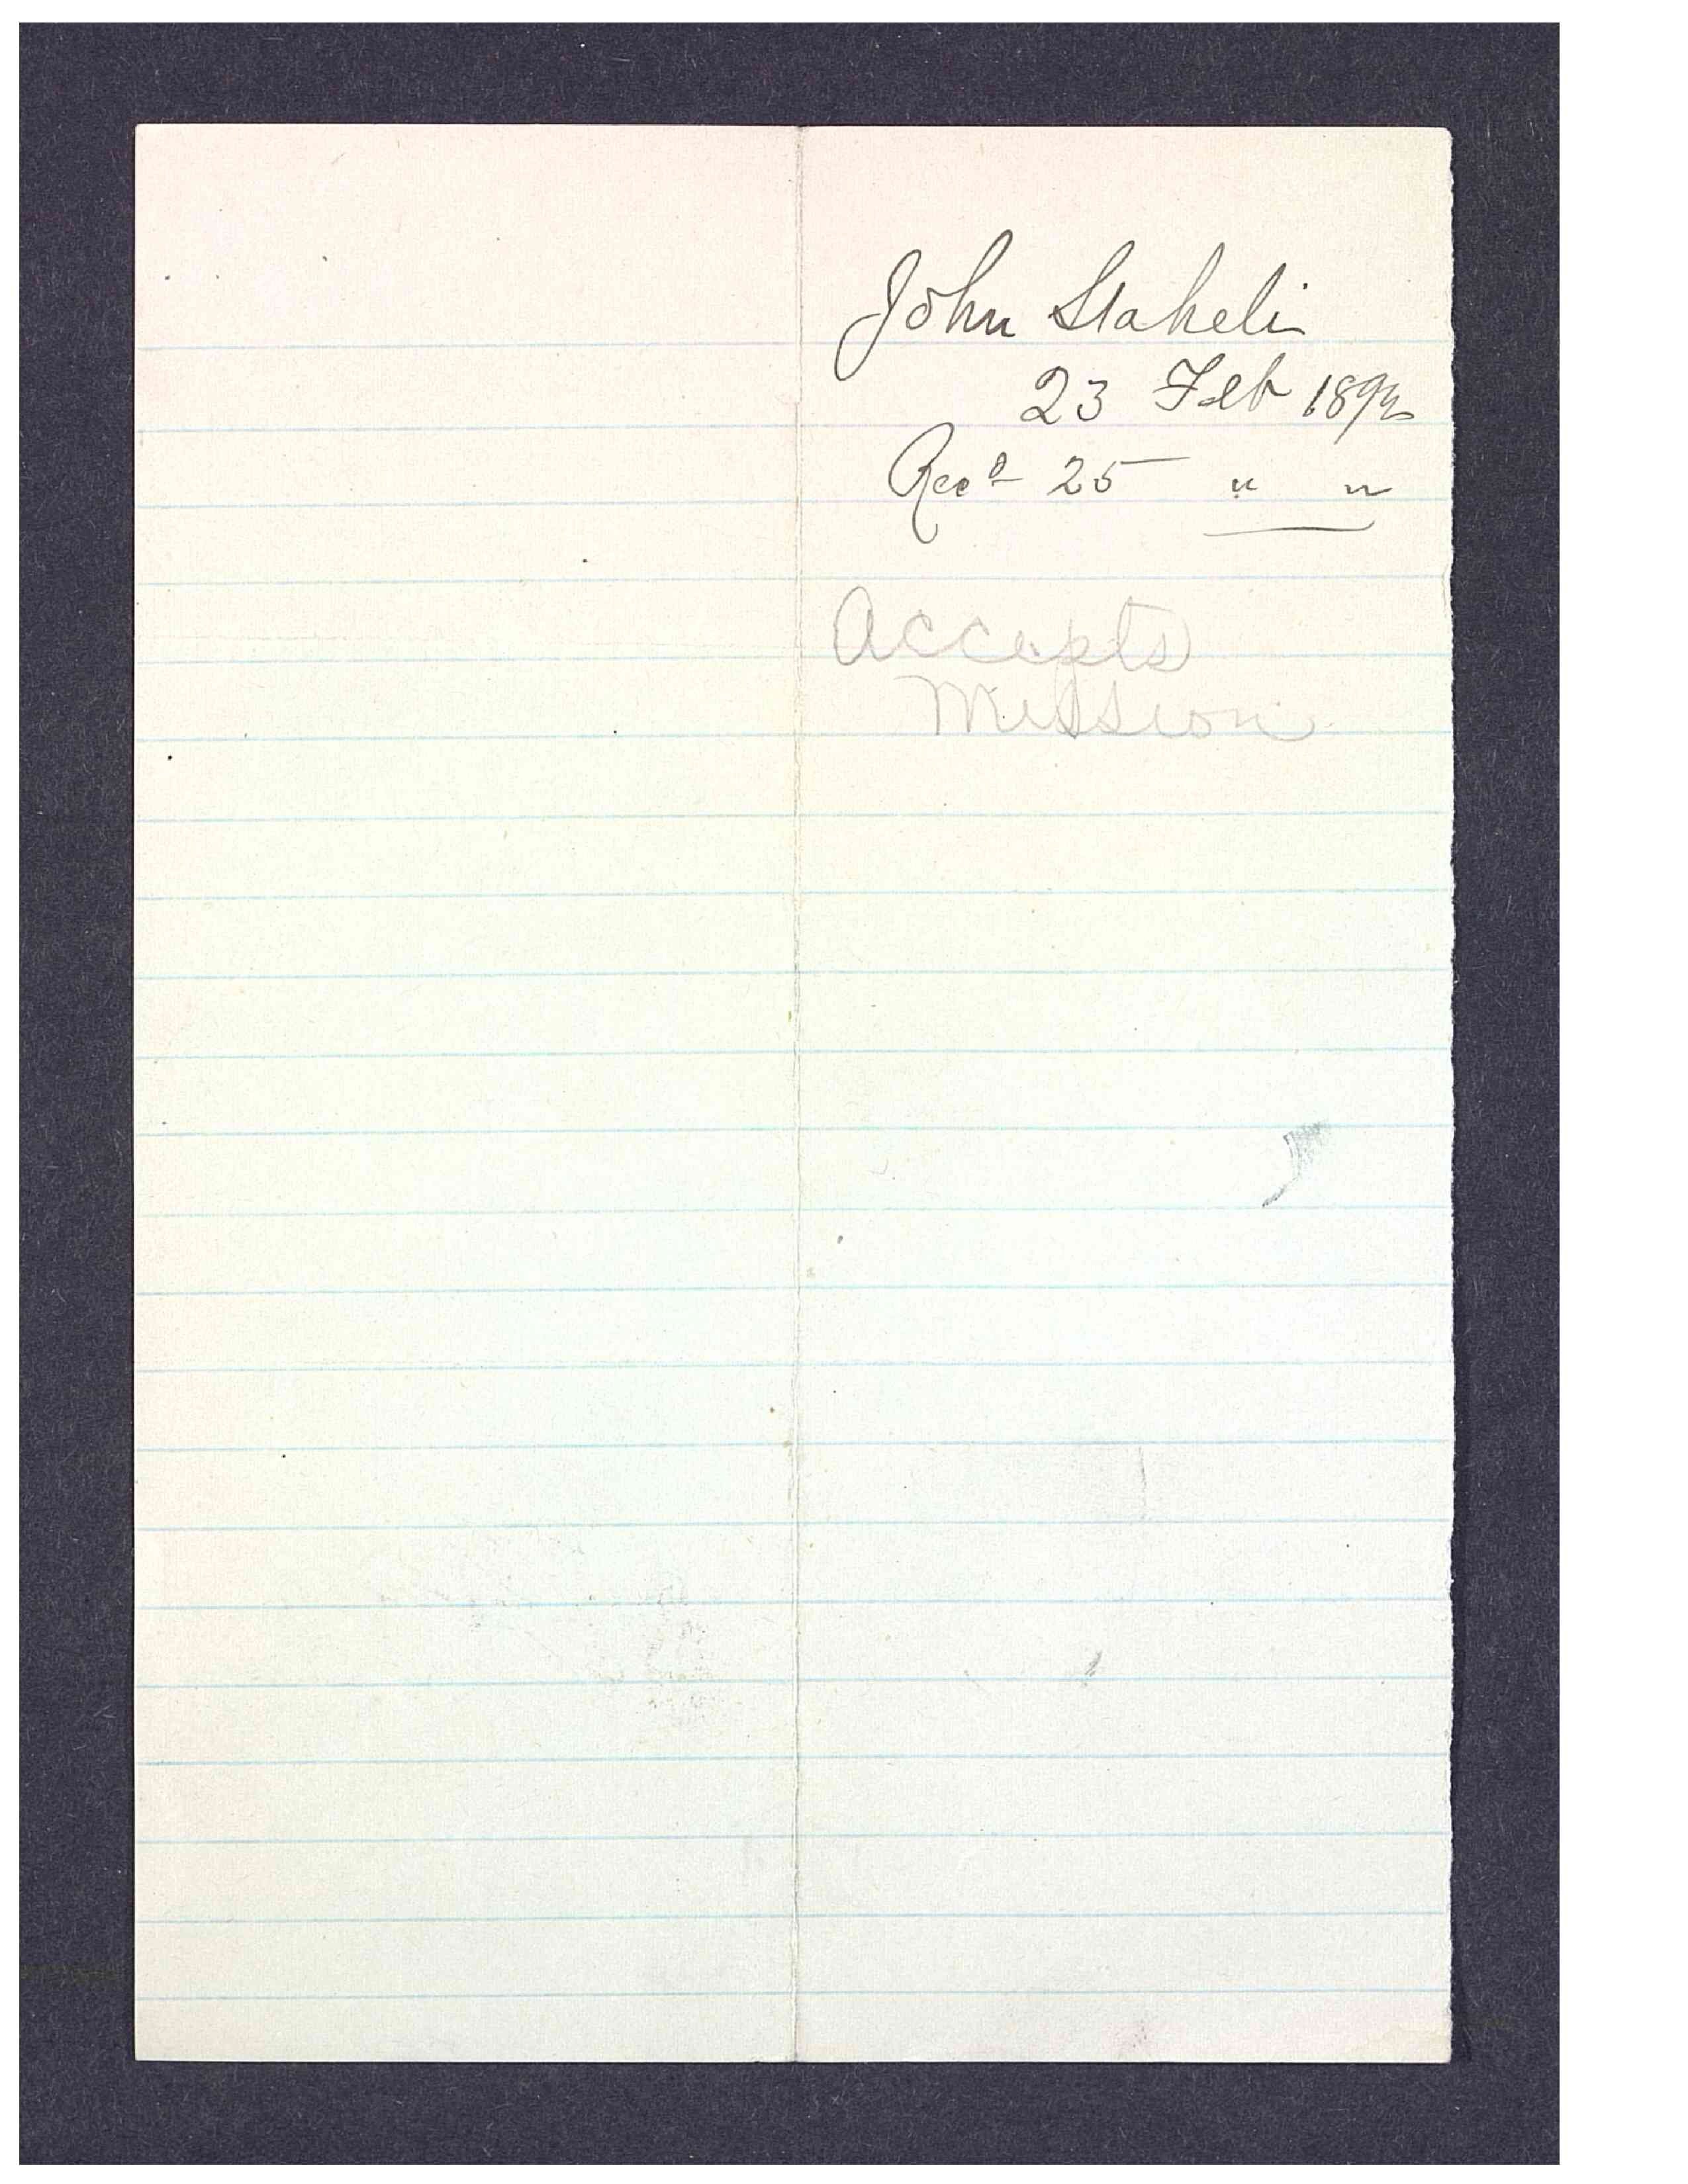 John Staheli
23 Feb 1892
Recd 25 " "
Accepts
Mission